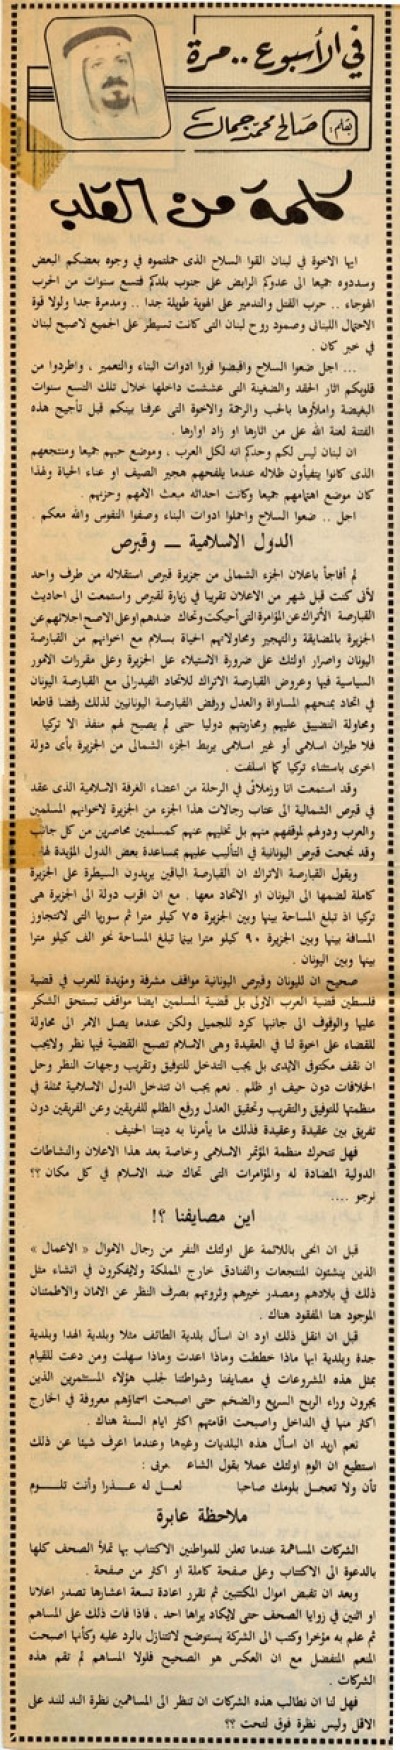 في الأسبوع .. مرة
بقلم: صالح محمد جمال
كلمة من القلب
ايها الاخوة في لبنان القوا السلاح الذى حملتموه في وجوه بعضكم البعض
وسددوه جميعا الى عدوكم الرابض على جنوب بلدكم فتسع سنوات من الحرب
الهوجاء .. حرب القتل والتدمير على الهوية طويلة جدا .. ومدمرة جدا ولولا قوة
الاحتمال اللبنانى وصمود روح لبنان التى كانت تسيطر على الجميع لاصبح لبنان
في خبر كان .
... اجل ضعوا السلاح واقبضوا فورا ادوات البناء والتعمير ، واطردوا من
قلوبكم اثار الحقد والضغينة التى عششت داخلها خلال تلك التسع سنوات
البغيضة واملأوها بالحب والرحمة والاخوة التى عرفنا بينكم قبل تأجيج هذه
الفتنة لعنة الله على من اثارها او زاد اوارها .
ان لبنان ليس لكم وحدكم انه لكل العرب ، وموضع حبهم جميعا ومنتجعهم
الذى كانوا يتفيأون ظلاله عندما يلفحهم هجير الصيف او عناء الحياة ولهذا
كان موضع اهتمامهم جميعا وكانت احداثه مبعث الامهم وحزنهم .
اجل .. ضعوا السلاح واحملوا ادوات البناء وصفوا النفوس والله معكم .
الدول الاسلامية ــ وقبرص
لم أفاجأ باعلان الجزء الشمالى من جزيرة قبرص استقلاله من طرف واحد
لأنى كنت قبل شهر من الاعلان تقريبا في زيارة لقبرص واستمعت الى احاديث
القبارصة الأتراك عن المؤامرة التى أحيكت وتحاك ضدهم او على الاصح اجلائهم عن
الجزيرة بالمضايقة والتهجير ومحاولاتهم الحياة بسلام مع اخوانهم من القبارصة
اليونان واصرار اولئك على ضرورة الاستيلاء على الجزيرة وعلى مقررات الامور
السياسية فيها وعروض القبارصة الاتراك للاتحاد الفيدرالى مع القبارصة اليونان
في اتحاد يمنحهم المساواة والعدل ورفض القبارصة اليونانيين لذلك رفضا قاطعا
ومحاولة التضييق عليهم ومحاربتهم دوليا حتى لم يصبح لهم منفذ الا تركيا
فلا طيران اسلامى أو غير اسلامى يربط الجزء الشمالى من الجزيرة بأى دولة
اخرى باستثناء تركيا كما اسلفت .
وقد استمعت انا وزملائى في الرحلة من اعضاء الغرفة الاسلامية الذى عقد
في قبرص الشمالية الى عتاب رجالات هذا الجزء من الجزيرة لاخوانهم المسلمين
والعرب ودولهم لموقفهم منهم بل تخليهم عنهم كمسلمين محاصرين من كل جانب
وقد نجحت قبرص اليونانية في التأليب عليهم بمساعدة بعض الدول المؤيدة لها .
ويقول القبارصة الاتراك ان القبارصة الباقين يريدون السيطرة على الجزيرة
كاملة لضمها الى اليونان او الاتحاد معها . مع ان اقرب دولة الى الجزيرة هى
تركيا اذ تبلغ المساحة بينها وبين الجزيرة ٧٥ كيلو مترا ثم سوريا التى لاتتجاوز
المسافة بينها وبين الجزيرة ٩٠ كيلو مترا بينما تبلغ المساحة نحو الف كيلو مترا
بينها وبين اليونان .
صحيح ان لليونان وقبرص اليونانية مواقف مشرفة ومؤيدة للعرب في قضية
فلسطين قضية العرب الاولى بل قضية المسلمين ايضا مواقف تستحق الشكر
عليها والوقوف الى جانبها كرد للجميل ولكن عندما يصل الامر الى محاولة
للقضاء على اخوة لنا في العقيدة وهى الاسلام تصبح القضية فيها نظر ولايجب
ان نقف مكتوفى الايدى بل يجب التدخل للتوفيق وتقريب وجهات النظر وحل
الخلافات دون حيف او ظلم . نعم يجب ان تتدخل الدول الاسلامية ممثلة في
منظمتها للتوفيق والتقريب وتحقيق العدل ورفع الظلم للفريقين وعن الفريقين دون
تفريق بين عقيدة وعقيدة فذلك ما يأمرنا به ديننا الحنيف .
فهل تتحرك منظمة المؤتمر الاسلامى وخاصة بعد هذا الاعلان والنشاطات
الدولية المضادة له والمؤامرات التى تحاك ضد الاسلام في كل مكان ؟؟
نرجو ....
اين مصايفنا ؟!
قبل ان انحى باللائمة على اولئك النفر من رجال الاموال « الاعمال »
الذين ينشئون المنتجعات والفنادق خارج المملكة ولايفكرون في انشاء مثل
ذلك في بلادهم ومصدر خيرهم وثروتهم بصرف النظر عن الامان والاطمئنان
الموجود هنا المفقود هناك .
قبل ان انقل ذلك اود ان اسأل بلدية الطائف مثلا وبلدية الهدا وبلدية
جدة وبلدية ابها ماذا خططت وماذا اعدت وماذا سهلت ومن دعت للقيام
بمثل هذه المشروعات في مصايفنا وشواطئنا لجلب هؤلاء المستثمرين الذين
يجرون وراء الربح السريع والضخم حتى اصبحت اسماؤهم معروفة في الخارج
اكثر منها في الداخل واصبحت اقامتهم اكثر ايام السنة هناك .
نعم اريد ان اسأل هذه البلديات وغيرها وعندما اعرف شيئا عن ذلك
استطيع ان الوم اولئك عملا بقول الشاعر العربى :
تأن ولا تعجل بلومك صاحبا لعل له عذرا وأنت تلوم
ملاحظة عابرة
الشركات المساهمة عندما تعلن للمواطنين الاكتتاب بها تملأ الصحف كلها
بالدعوة الى الاكتتاب وعلى صفحة كاملة او اكثر من صفحة .
وبعد ان تقبض اموال المكتتبين ثم تقرر اعادة تسعة اعشارها تصدر اعلانا
او اثنين في زوايا الصحف حتى لايكاد يراها احد ، فاذا فات ذلك على المساهم
ثم علم به مؤخرا وكتب الى الشركة يستوضح لاتتنازل بالرد عليه وكأنها اصبحت
المنعم المتفضل مع ان العكس هو الصحيح فلولا المساهم لم تقم هذه
الشركات .
فهل لنا ان نطالب هذه الشركات ان تنظر الى المساهمين نظرة الند للند على
الاقل وليس نظرة فوق لتحت ؟؟